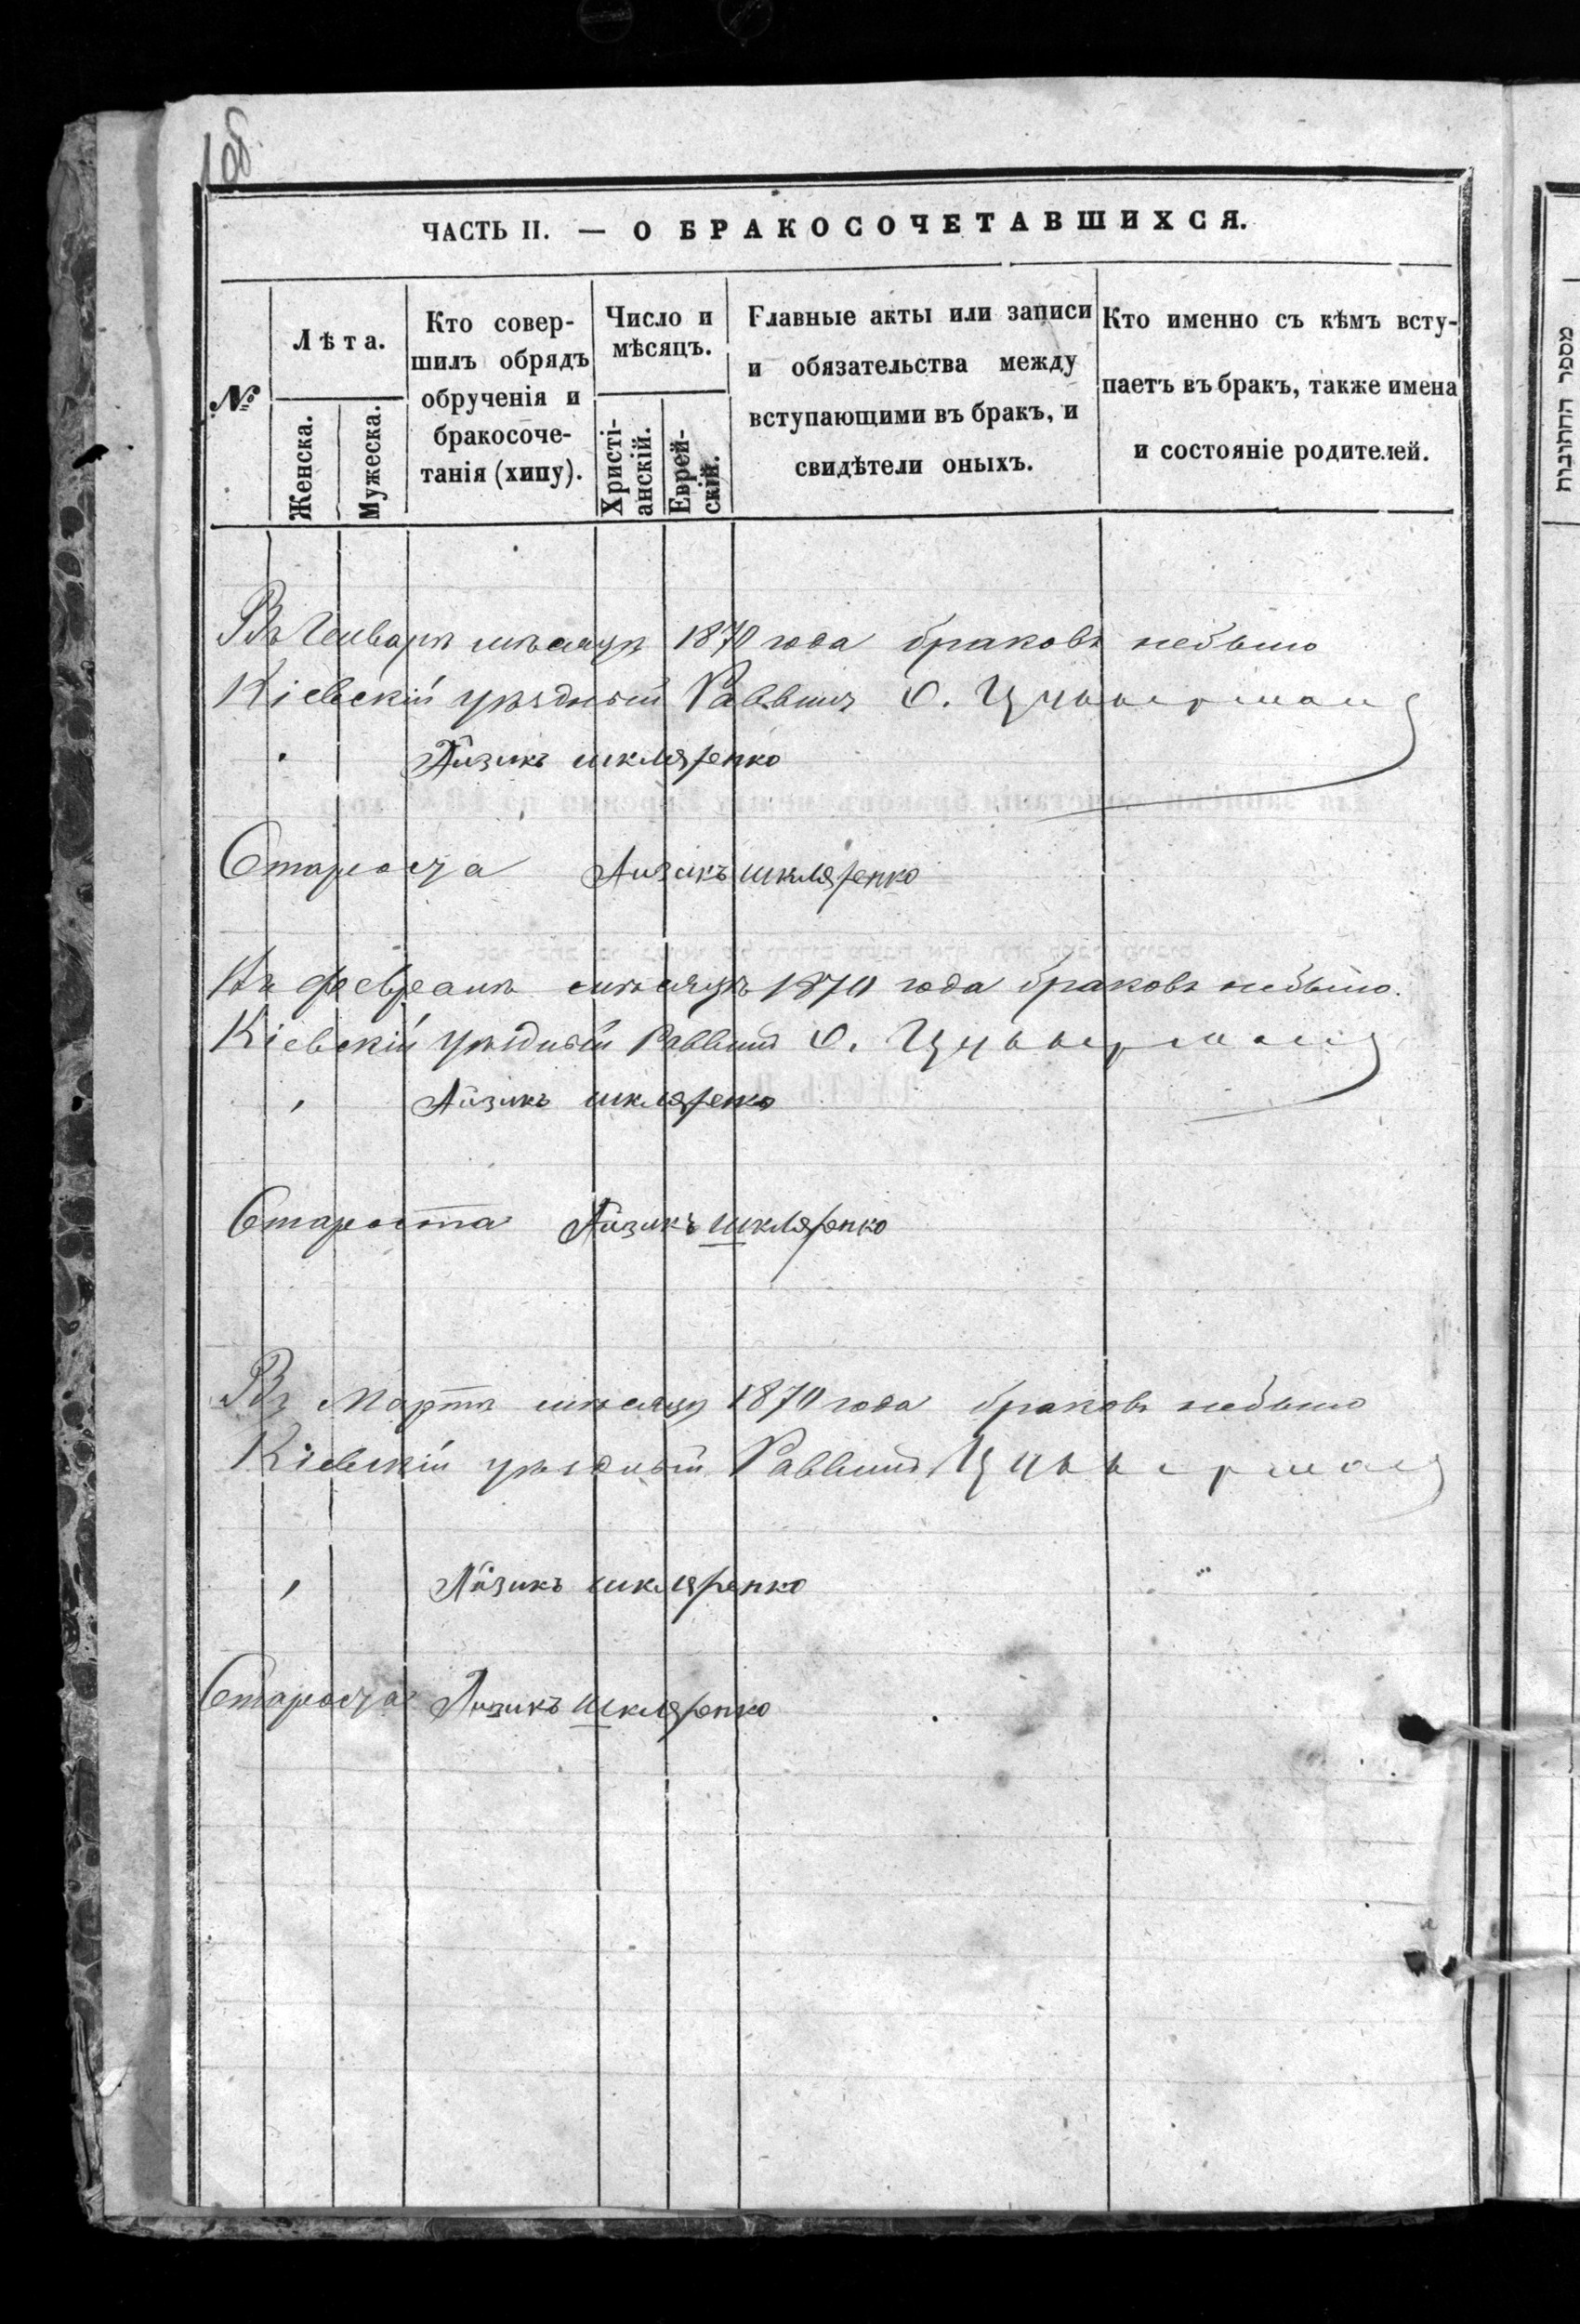 1об.
ЧАСТЬ II. — О БРАКОСОЧЕТАВШИХСЯ.
№
Лѣта.
Женска.
Мужеска.
Кто совер-
шилъ обрядъ
обрученія и
бракосоче-
танія (хипу).
Число и
мѣсяцъ.
Христі-
анскій.
Еврей-
скій.
Главные акты или записи
и обязательства между
вступающими въ бракъ, и
свидѣтели оныхъ.
Кто именно съ кѣмъ всту-
паетъ въ бракъ, также имена
и состояніе родителей.
Въ Генварѣ мѣсяцѣ 1870 года браковъ небыло
Кіевскій уѣздный Раввинъ О. Цукерманъ
Айзикъ шкляренко
Староста Айзикъ шкляренко
Въ Февралѣ мѣсяцѣ 1870 года браковъ небыло.
Кіевскій уѣздный Раввинъ О. Цукерманъ
Айзикъ шкляренко
Староста Айзикъ шкляренко
Въ Мартѣ мѣсяцѣ 1870 года браковъ небыло
Кіевскій уѣздный Раввинъ Цукерманъ
Айзикъ шкляренко
Староста Айзикъ шкляренко
מספר החתונות